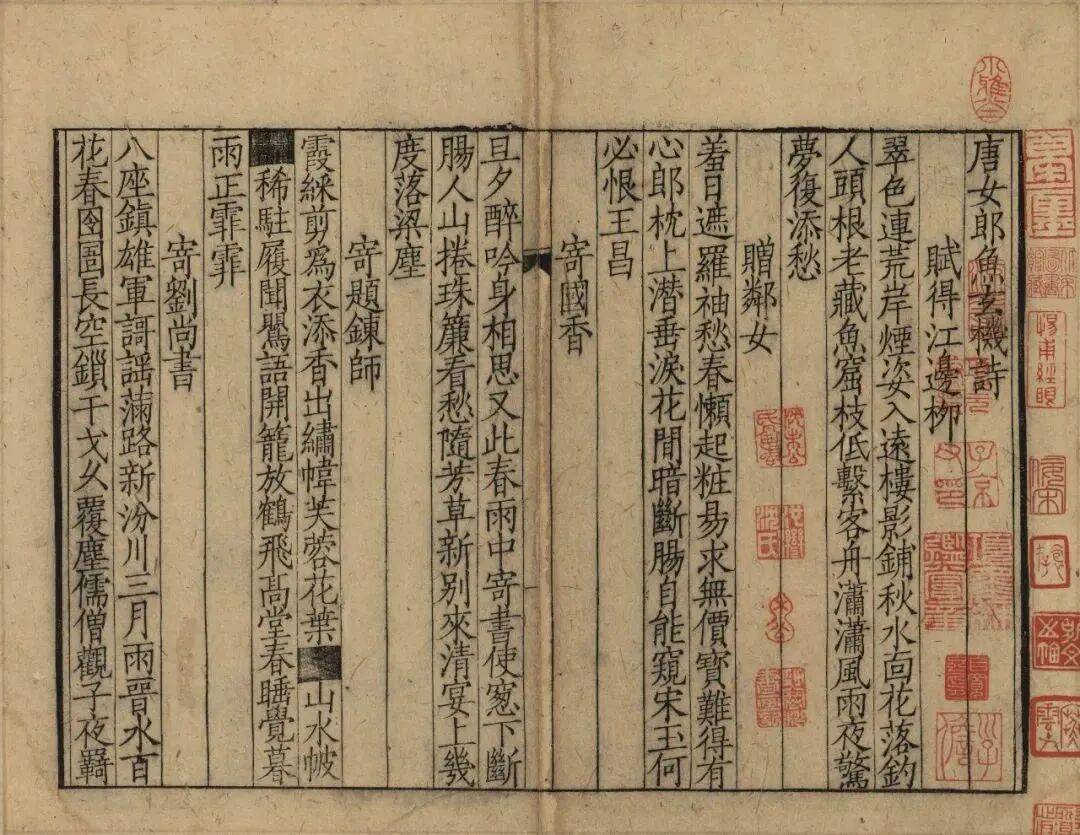 唐女郎魚玄機詩
賦得江邊柳
翠色連荒岸煙姿入遠樓影鋪秋水面花落釣
人頭根老藏魚窟枝低繫客舟瀟瀟風雨夜驚
夢復添愁
贈鄰女
羞日遮羅袖愁春懶起粧易求無價寶難得有
心郎枕上潛垂淚花間暗斷腸自能窺宋玉何
必恨王昌
寄國香
旦夕醉吟身相思又此春雨中寄書使窓下斷
腸人山捲珠簾看愁隨芳草新別來清宴上幾
度落梁塵
寄題鍊師
霞綵剪爲衣添香出繡幃芙蓉花葉山水帔
稀駐履聞鶯語開籠放鶴飛高堂春睡覺暮
雨正霏霏
寄劉尚書
八座鎮雄軍謌謡滿路新汾川三月雨晉水百
花春囹圄長空鎖干戈久覆塵儒僧觀子夜羇
子京